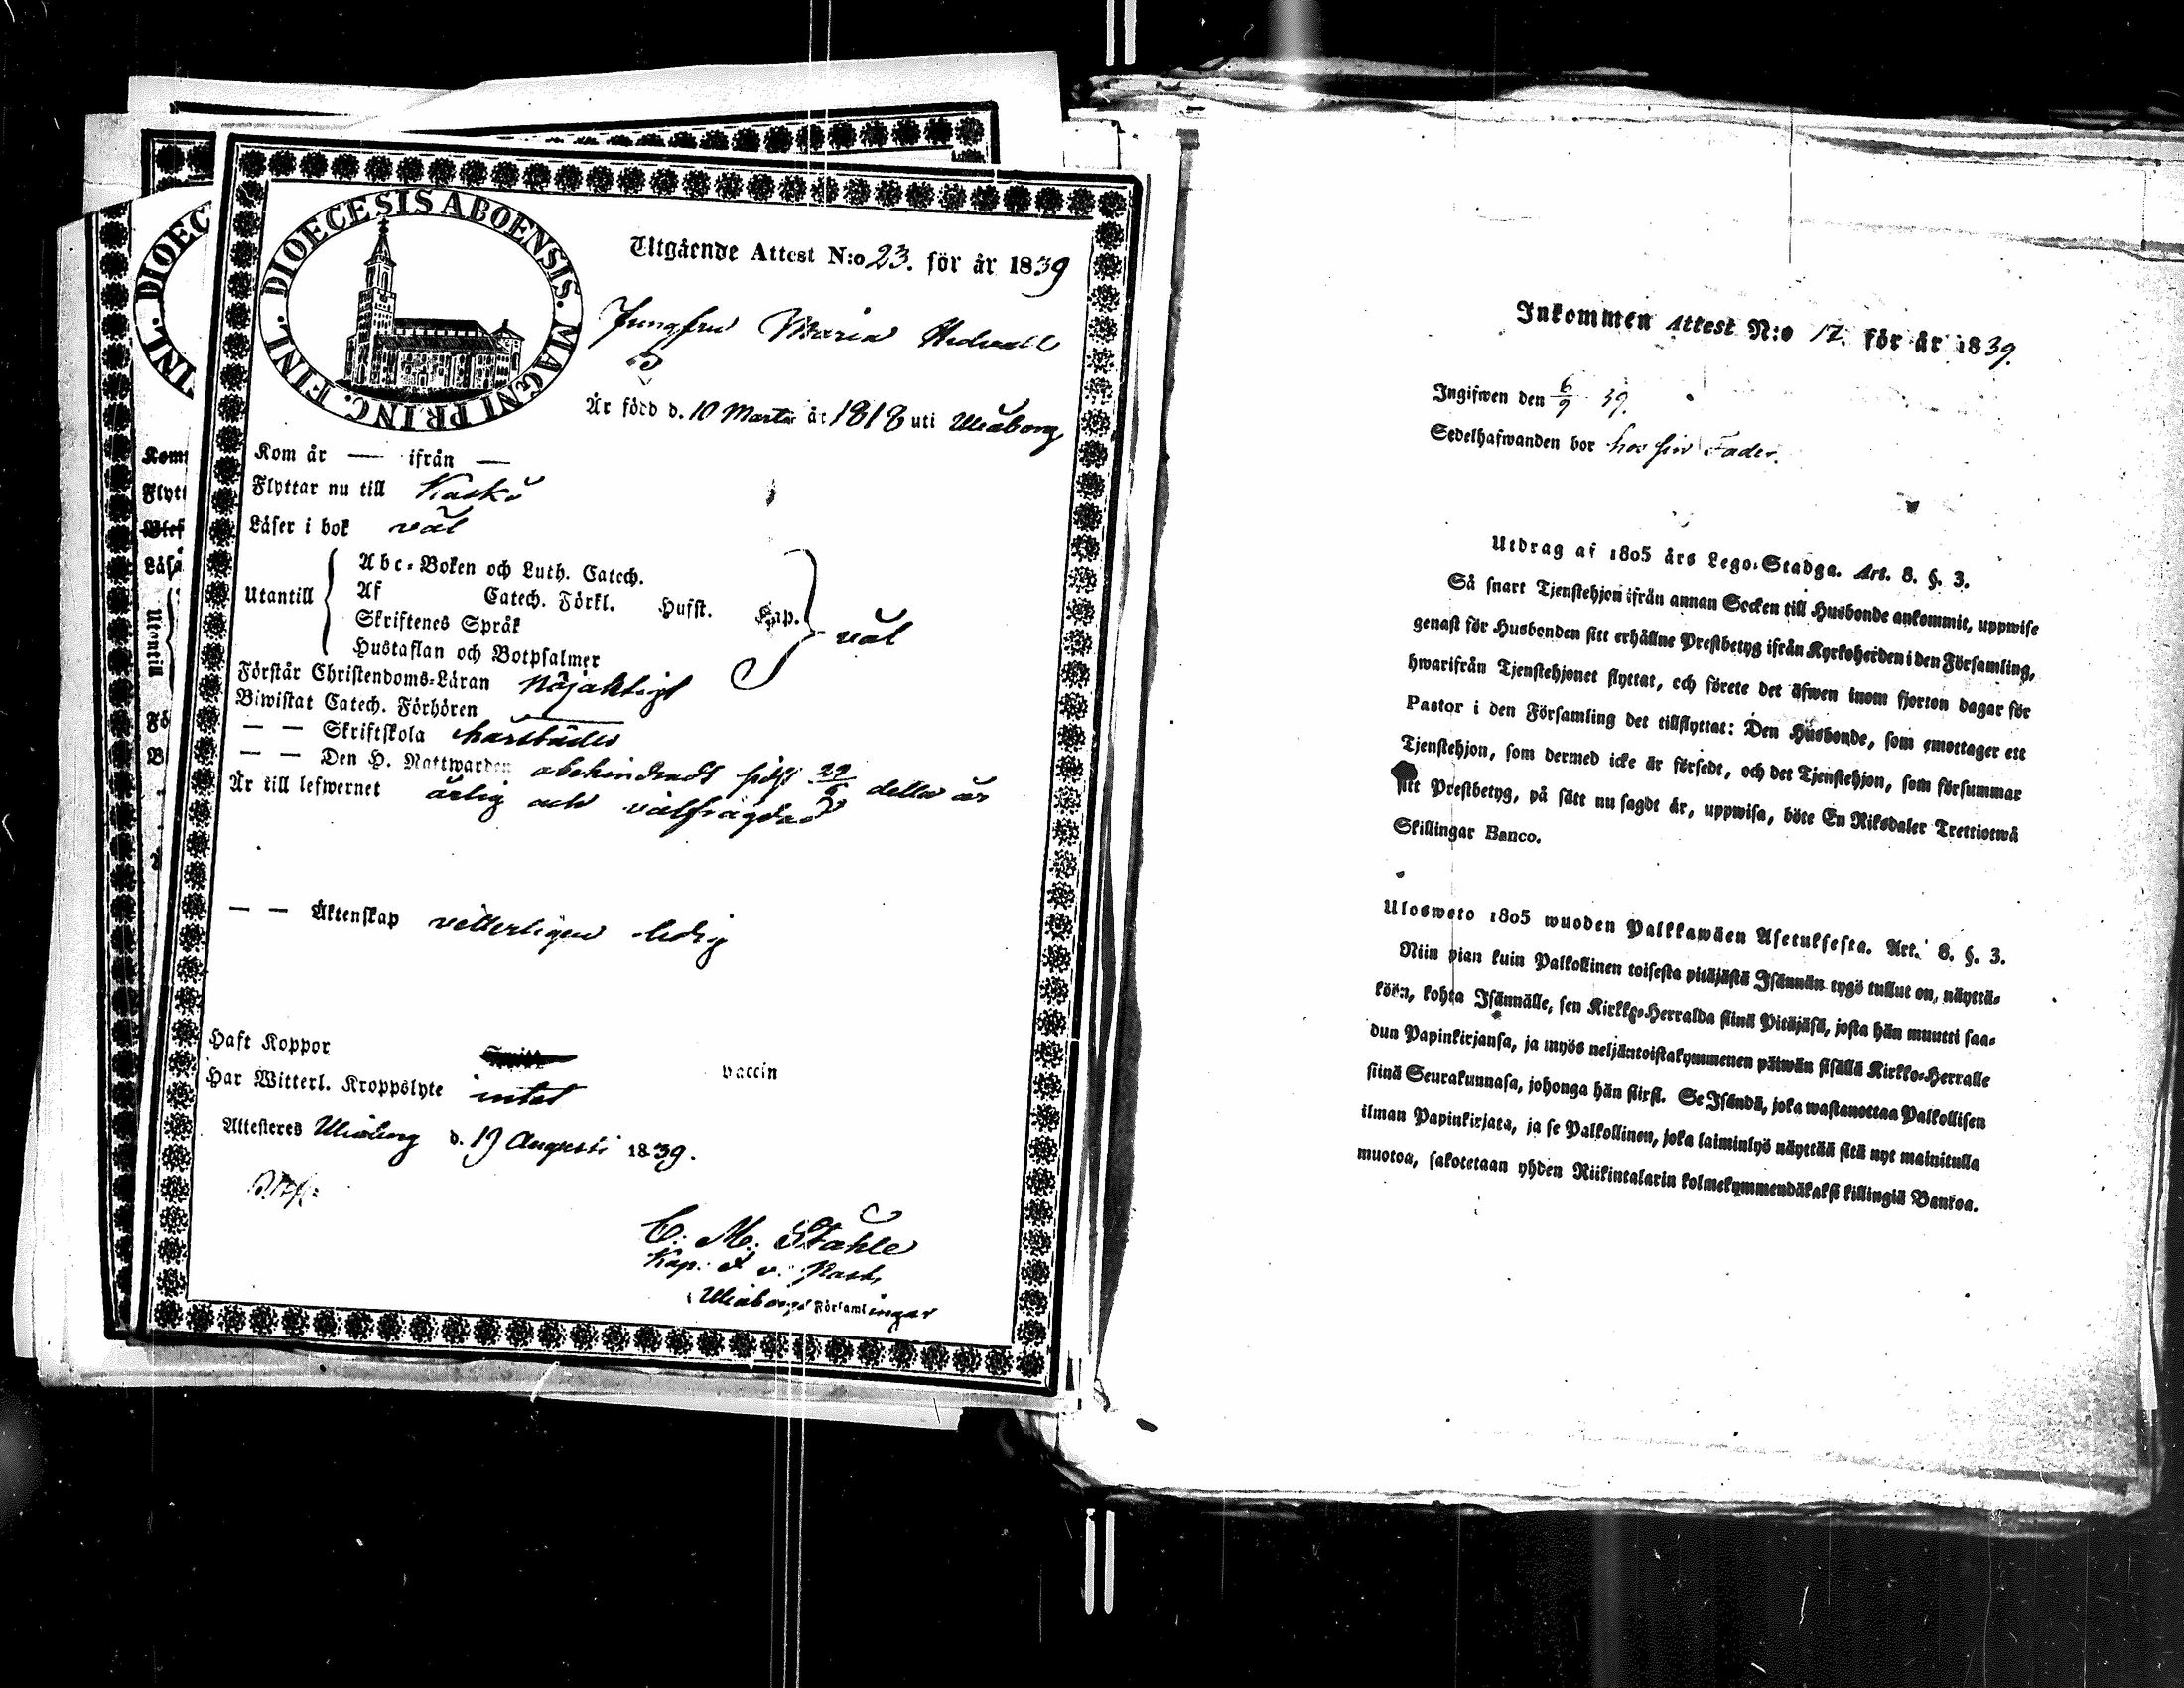 DIOECESIS ABOENSIS. MAGNI PRINC. FINL.
Utgående Attest N:o 23. för år 1839
Jungfru Maria Hedvall
Är född d. 10 Martii år 1818 uti Uleåborg
Kom år — ifrån —
Flyttar nu till Kaskö
Läser i bok väl
Utantill
Abc-Boken och Luth. Catech.
Af Catech. Förkl. Husst. Cap.
Skriftenes Språk
Hustaflan och Botpsalmer
väl
Förstår Christendoms-Läran nöjaktigt
Biwistat Catech. Förhören
— — Skriftskola härstädes
— — Den H. Nattwarden obehindradt sidst detta år
Är till lefwernet ärlig och välfrägdad
— — Äktenskap vetterligen ledig
Haft Koppor vaccin
Har Witterl. Kroppslyte intet
Attesteres Uleåborg d. 19 Augusti 1839.
C. M. Ståhle
Kap. v. Past.
Uleåborgs Församlingar
DIOEC
INL.
Kom
Flytt
Läsa
Utantill
Fö
B
Inkommen Attest N:o 17. för år 1839.
Ingifwen den 6/9 39.
Sedelhafwanden bor hos sin Fader.
Utdrag af 1805 års Lego-Stadga. Art. 8. §. 3.
Så snart Tjenstehjon ifrån annan Socken till Husbonde ankommit, uppwise
genast för Husbonden sitt erhållne Prestbetyg ifrån Kyrkoherden i den Församling,
hwarifrån Tjenstehjonet flyttat, och förete det äfwen inom fjorton dagar för
Pastor i den Församling det tillflyttat: Den Husbonde, som emottager ett
Tjenstehjon, som dermed icke är försedt, och det Tjenstehjon, som försummar
sitt Prestbetyg, på sätt nu sagdt är, uppwisa, böte En Riksdaler Trettiotwå
Skillingar Banco.
Ulosweto 1805 wuoden Palkkawäen Asetuksesta. Art. 8. §. 3.
Niin pian kuin Palkollinen toisesta pitäjästä Isännän tygö tullut on, näyttä-
köön, kohta Isännälle, sen Kirkko-Herralda siinä Pitäjäsä, josta hän muutti saa-
dun Papinkirjansa, ja myös neljäntoistakymmenen päiwän sisällä Kirkko-Herralle
siinä Seurakunnasa, johonga hän siirst. Se Isändä, joka wastanottaa Palkollisen
ilman Papinkirjata, ja se Palkollinen, joka laiminlyö näyttää sitä nyt mainitulla
muotoa, sakotetaan yhden Riikintalarin kolmekymmendäkaksi killingiä Bankoa.